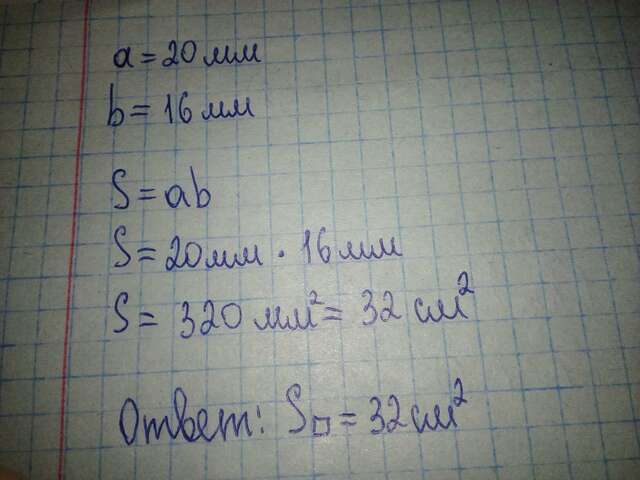 a = 20 мм
b = 16 мм
S = ab
S = 20мм · 16мм
S = 320 мм² = 32 см²
Ответ: S□ = 32 см²